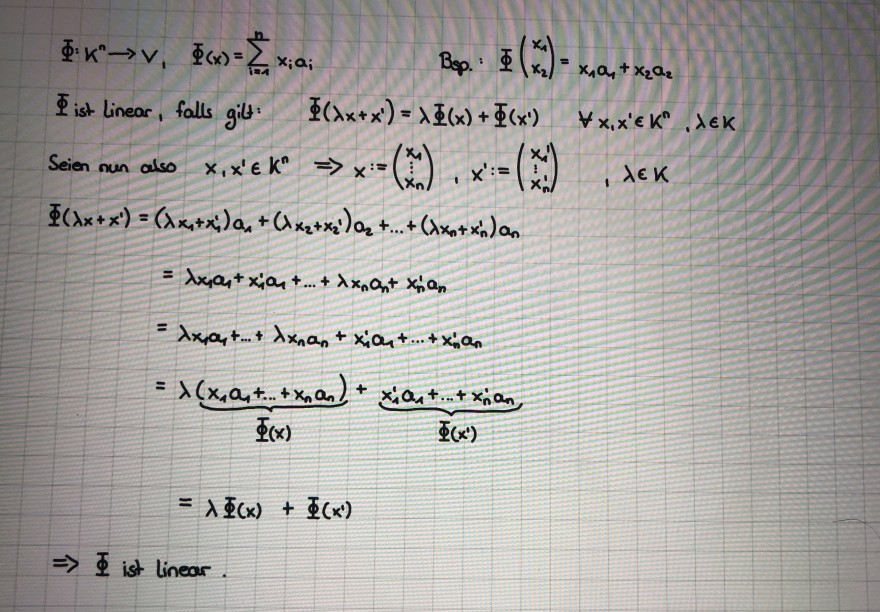 Φ: Kⁿ → V, Φ(x) = ∑ᵢ₌₁ⁿ xᵢaᵢ Bsp.: Φ(x₁ x₂) = x₁a₁ + x₂a₂
Φ ist linear, falls gilt: Φ(λx+x') = λΦ(x) + Φ(x') ∀ x,x' ∈ Kⁿ, λ∈K
Seien nun also x,x' ∈ Kⁿ ⟹ x := (x₁ ⋮ xₙ), x' := (x₁' ⋮ xₙ'), λ∈K
Φ(λx+x') = (λx₁+x₁')a₁ + (λx₂+x₂')a₂ + ... + (λxₙ+xₙ')aₙ
= λx₁a₁ + x₁'a₁ + ... + λxₙaₙ + xₙ'aₙ
= λx₁a₁ + ... + λxₙaₙ + x₁'a₁ + ... + xₙ'aₙ
= λ(x₁a₁ + ... + xₙaₙ) + x₁'a₁ + ... + xₙ'aₙ
Φ(x) Φ(x')
= λΦ(x) + Φ(x')
⟹ Φ ist linear.